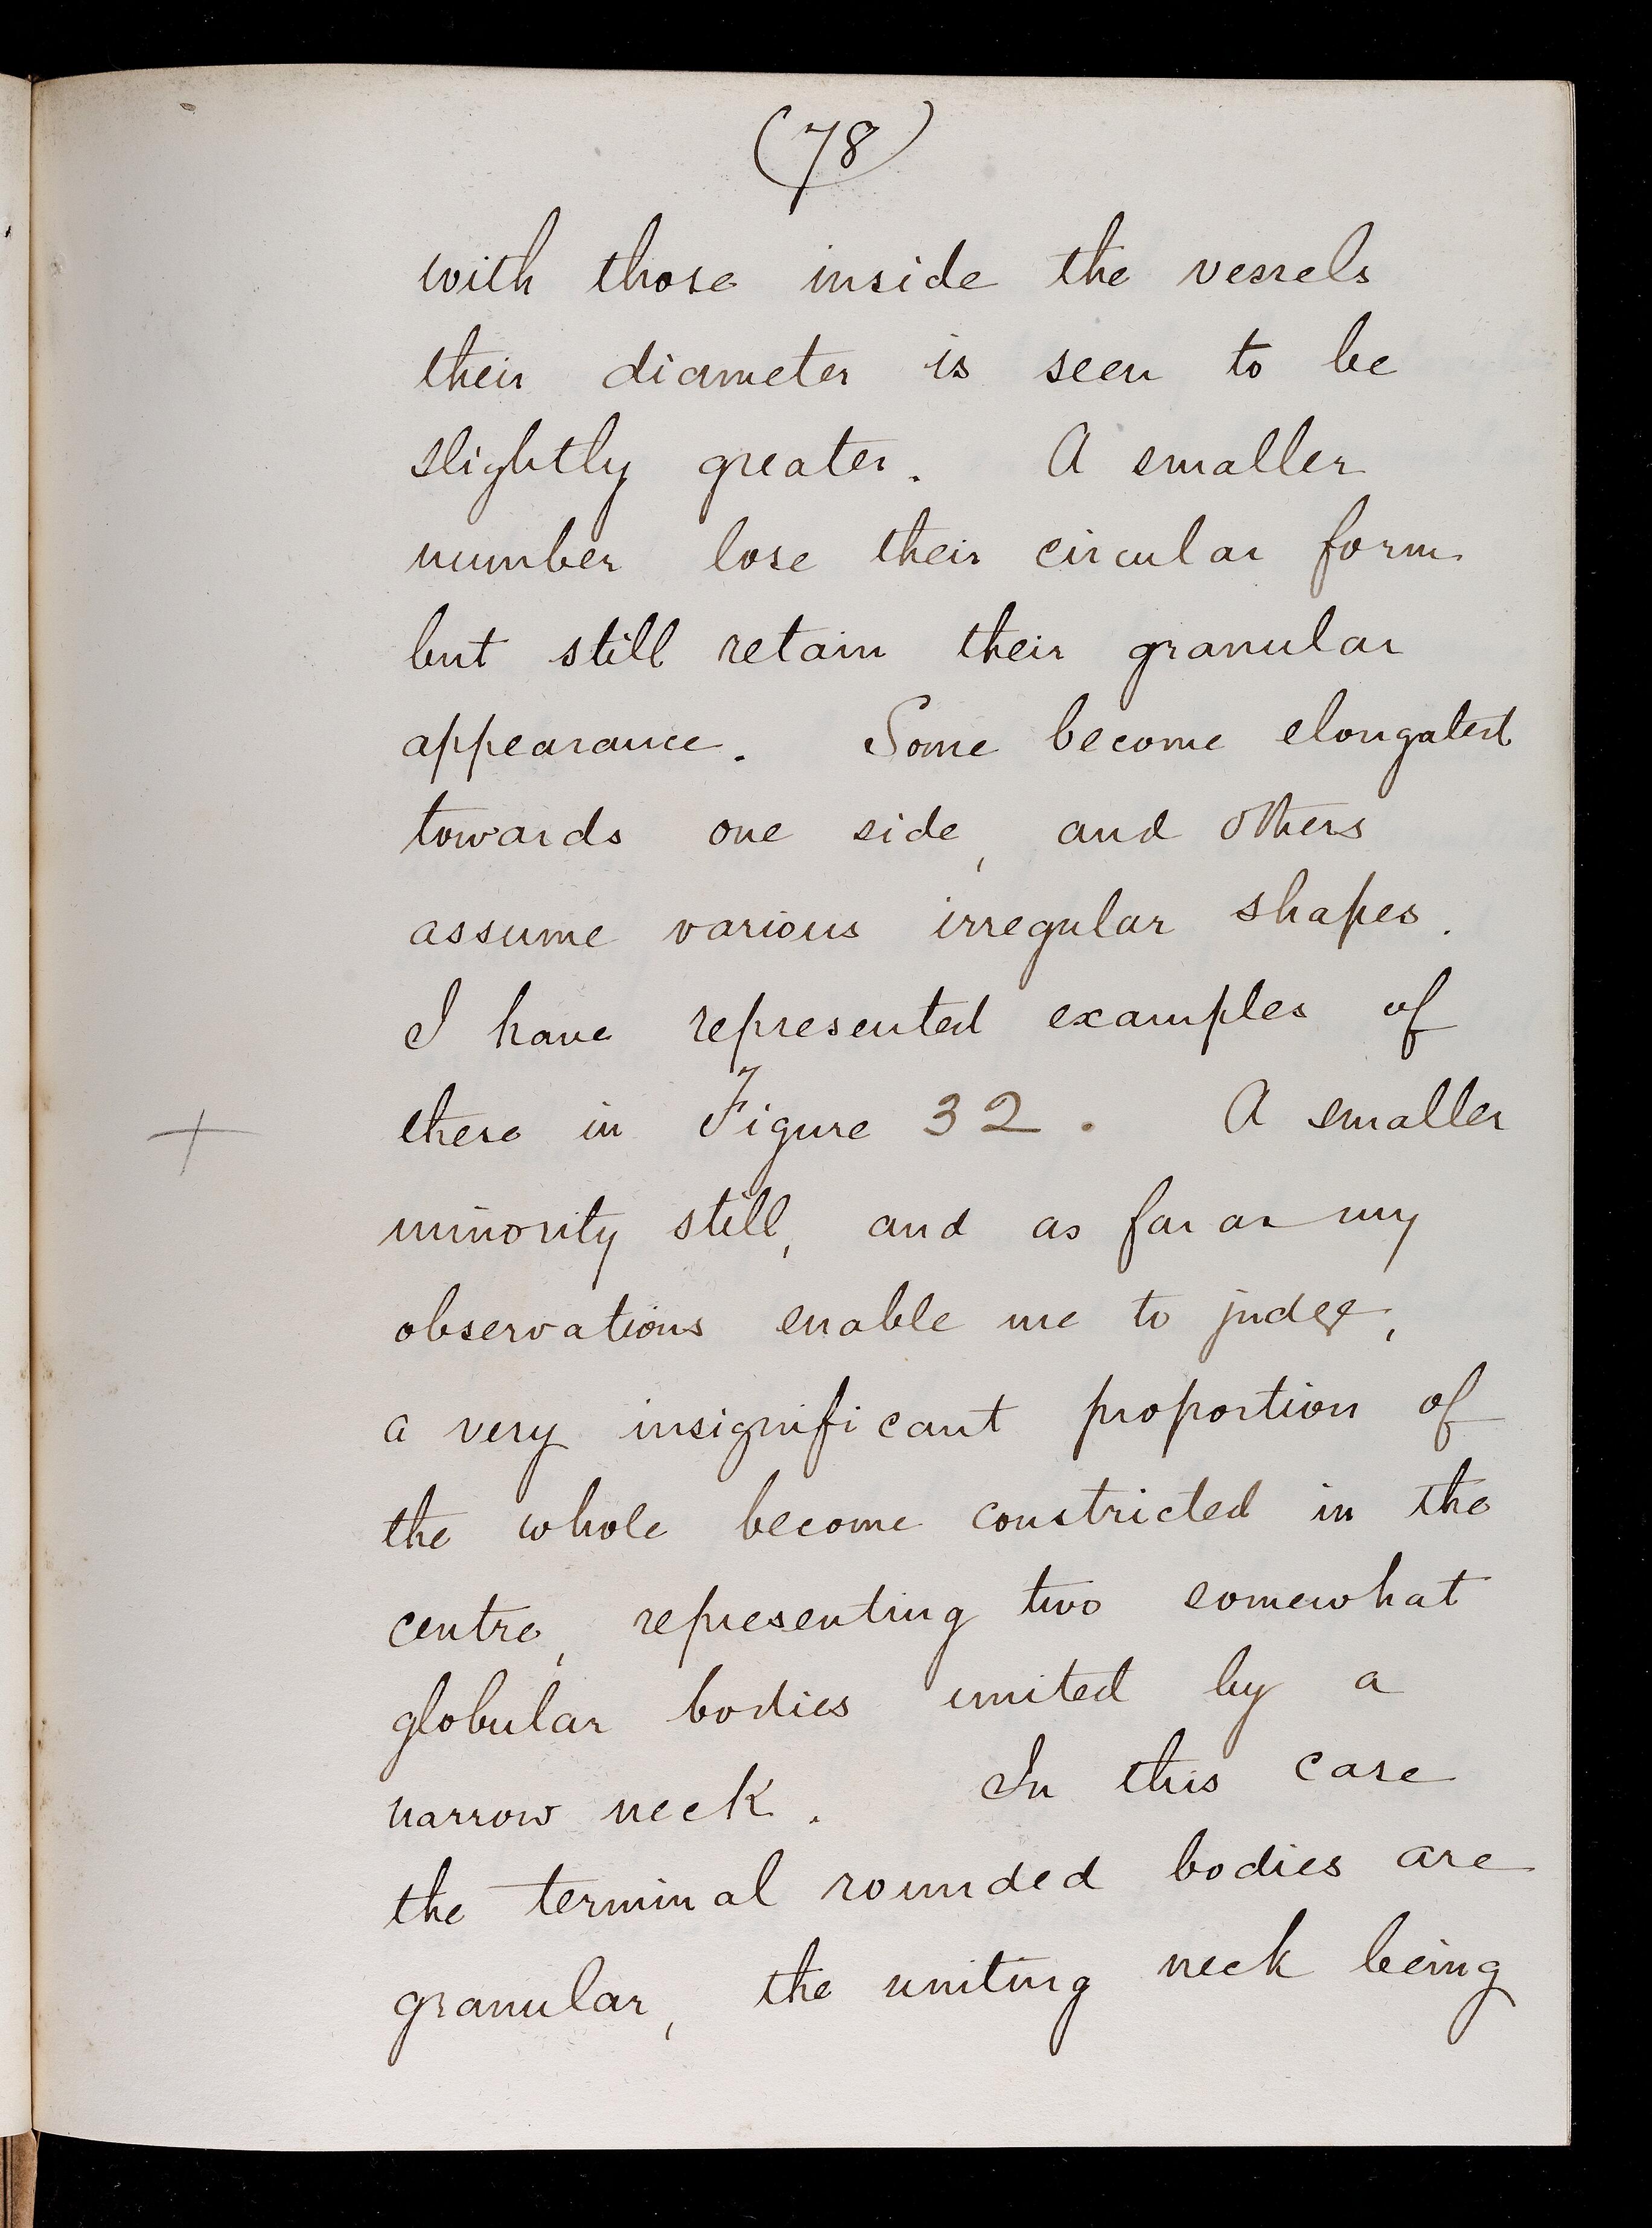 (78)
with those inside the vessels
their diameter is seen to be
slightly greater. A smaller
number lose their circular form
but still retain their granular
appearance. Some become elongated
towards one side, and others
assume various irregular shapes.
I have represented examples of
+ these in Figure 32. A smaller
minority still, and as far as my
observations enable me to judge,
a very insignificant proportion of
the whole become constricted in the
centre, representing two somewhat
globular bodies united by a
narrow neck. In this case
the terminal rounded bodies are
granular, the uniting neck being